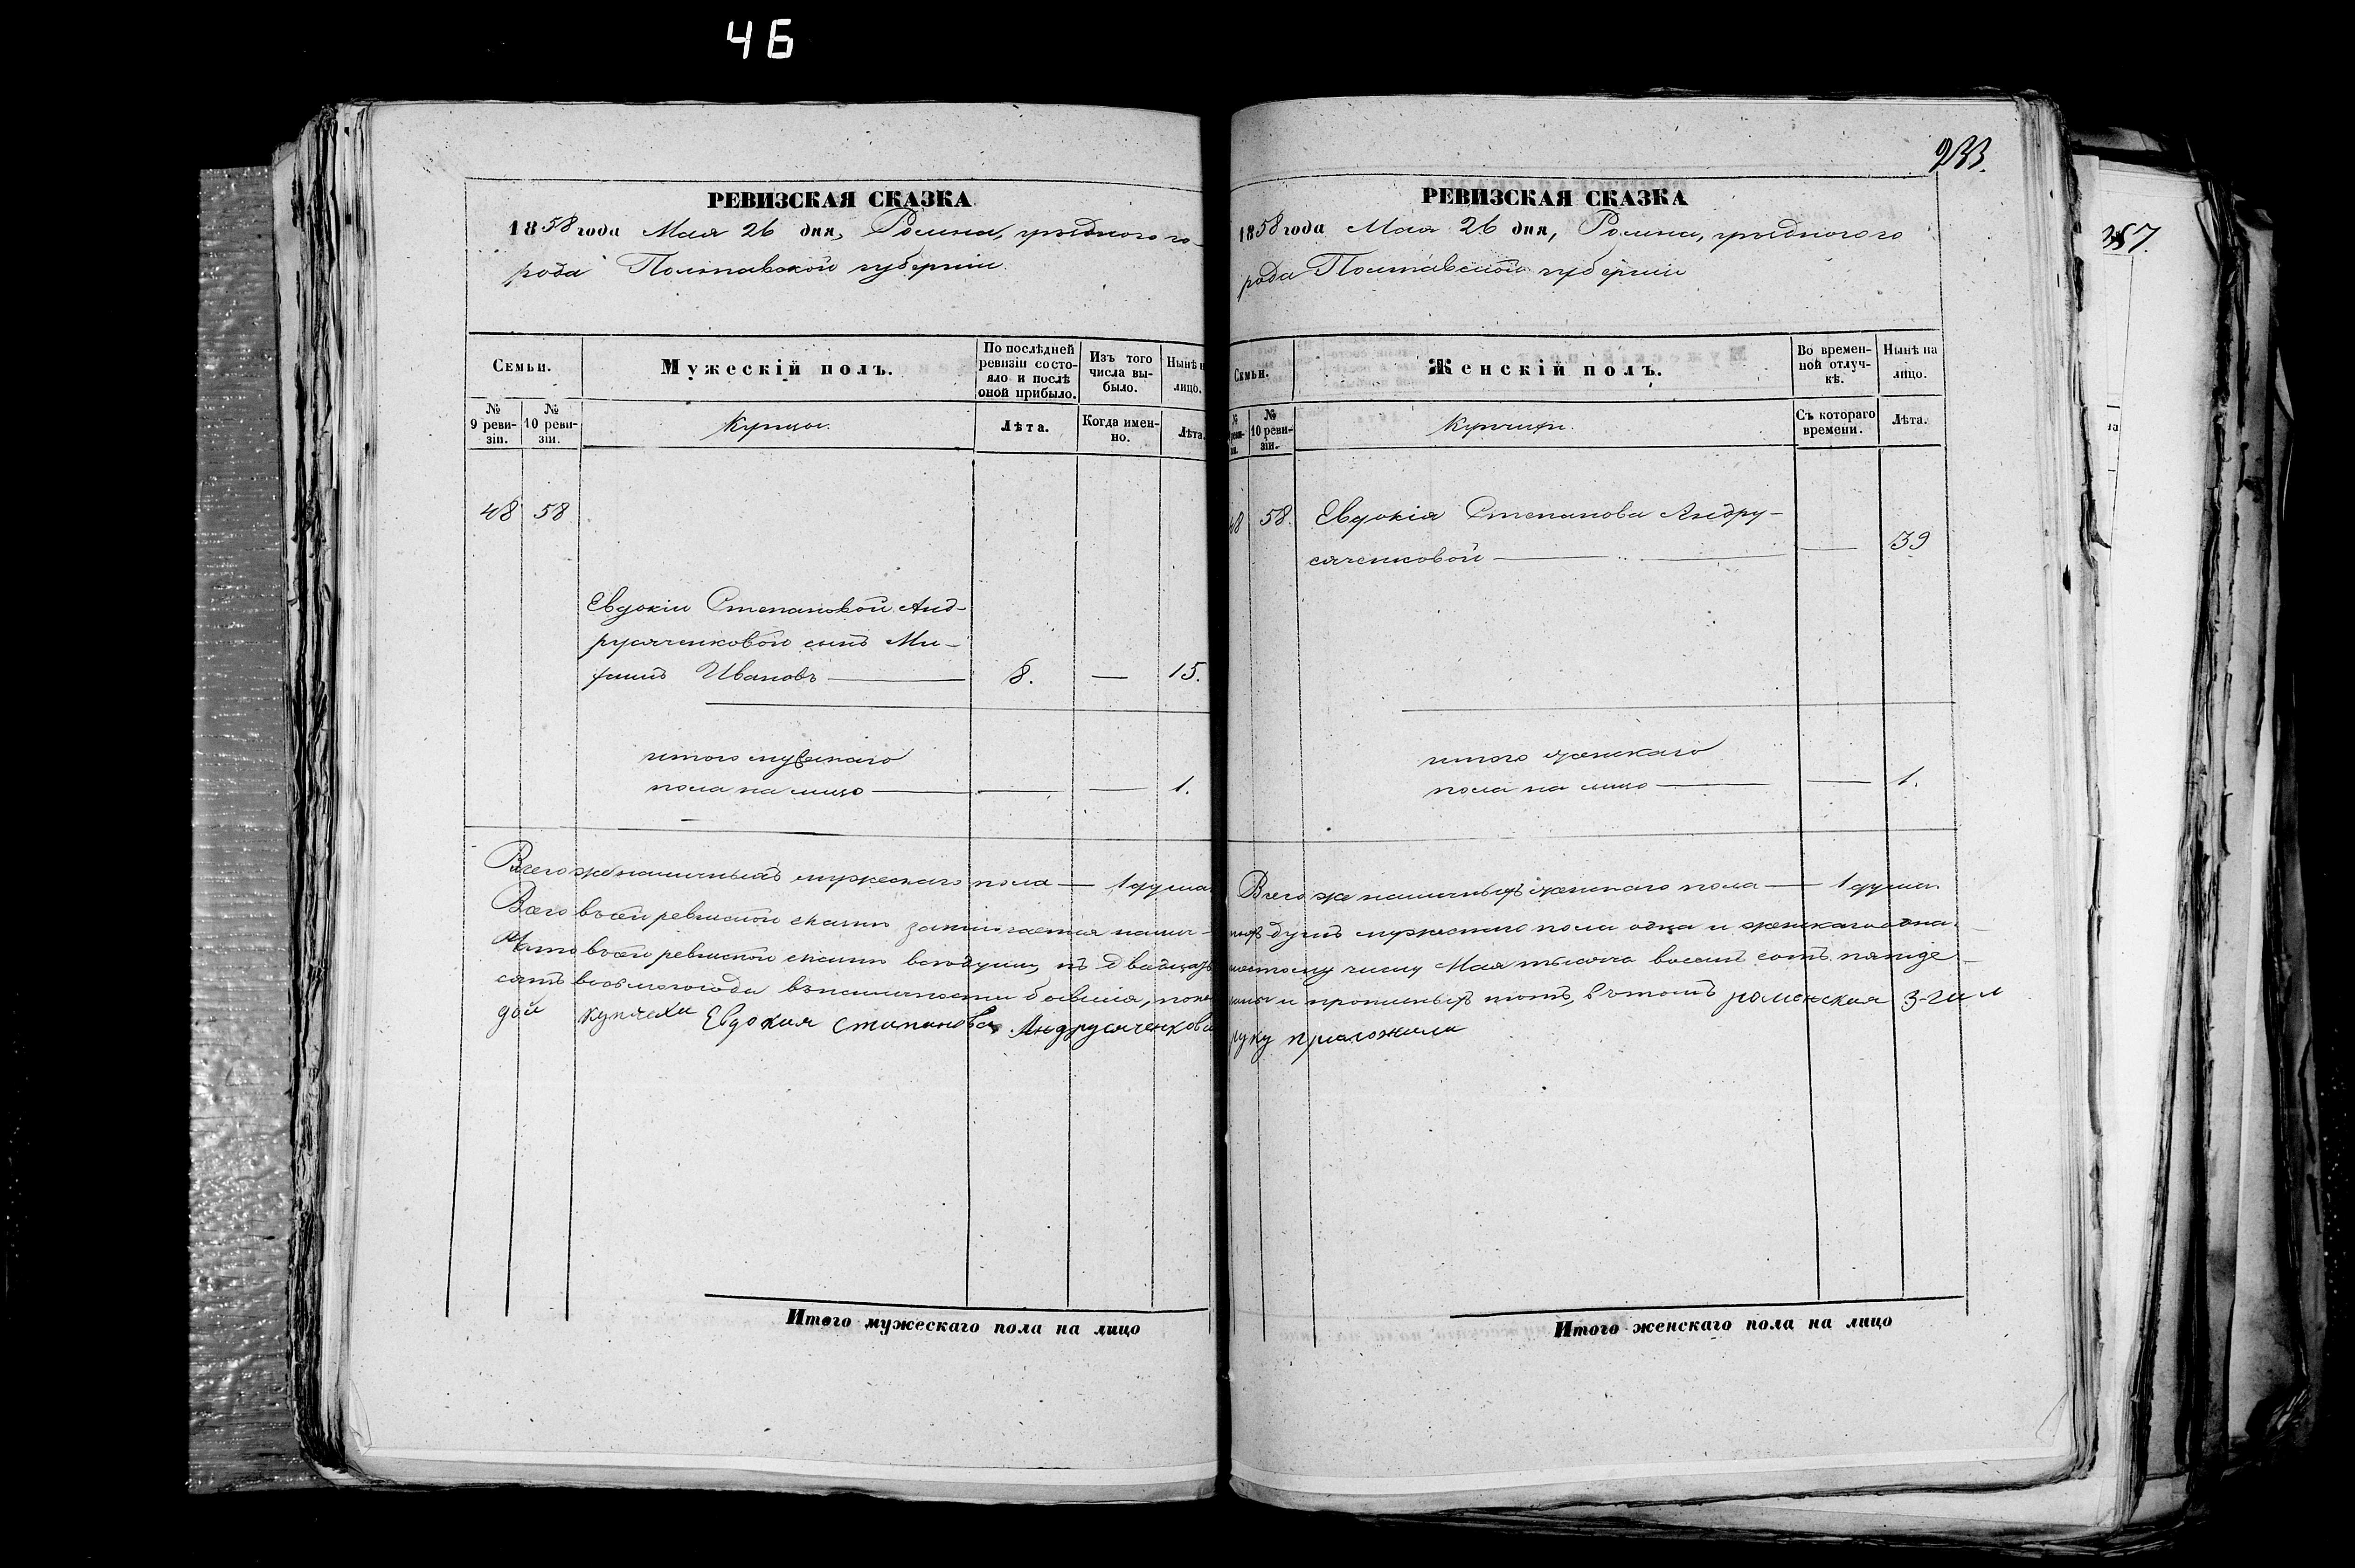 46
РЕВИЗСКАЯ СКАЗКА
1858 года Мая 26 дня, Ромна, уѣздного го-
рода Полтавской губерніи
Семьи.
Мужескій полъ.
По послѣдней ревизіи состояло и послѣ оной прибыло.
Изъ того числа выбыло.
Нынѣ на лицо.
№ 9 ревизіи.
№ 10 ревизіи.
Купцы.
Лѣта.
Когда именно.
Лѣта.
48 58
Евдокіи Степановой Анд-
русяченковой сынъ Ми-
Ивановъ 8. — 15.
итого мужескаго
пола на лицо — — 1.
Всего же наличныхъ мужескаго пола — 1 душа.
Всего въ сей ревизской сказкѣ заключается налич-
Что въ сей ревизской сказкѣ всѣ души, къ двадцать
сятъ восьмого года въ наличности бывшія, пока
дой купчеха Евдокия Стипанова Андрусяченкова
Итого мужескаго пола на лицо
233.
РЕВИЗСКАЯ СКАЗКА
1858 года Мая 26 дня, Ромна, уѣздного го
рода Полтавской губерніи
Семьи.
Женскій полъ.
Во временной отлучкѣ.
Нынѣ на лицо.
№ 10 ревизіи.
Купчихи.
Съ котораго времени.
Лѣта.
48 58. Евдокія Степанова Андру-
сяченковой — 39
итого женскаго
пола на лицо — 1.
Всего же наличныхъ женскаго пола — 1 душа.
ныхъ душъ мужескаго пола одна и женскаго одна.
шестому числу Мая тысяча восемь сотъ пятиде-
заны и прописныхъ нѣтъ, въ томъ роменская 3-гил
руку приложила
Итого женскаго пола на лицо
387.